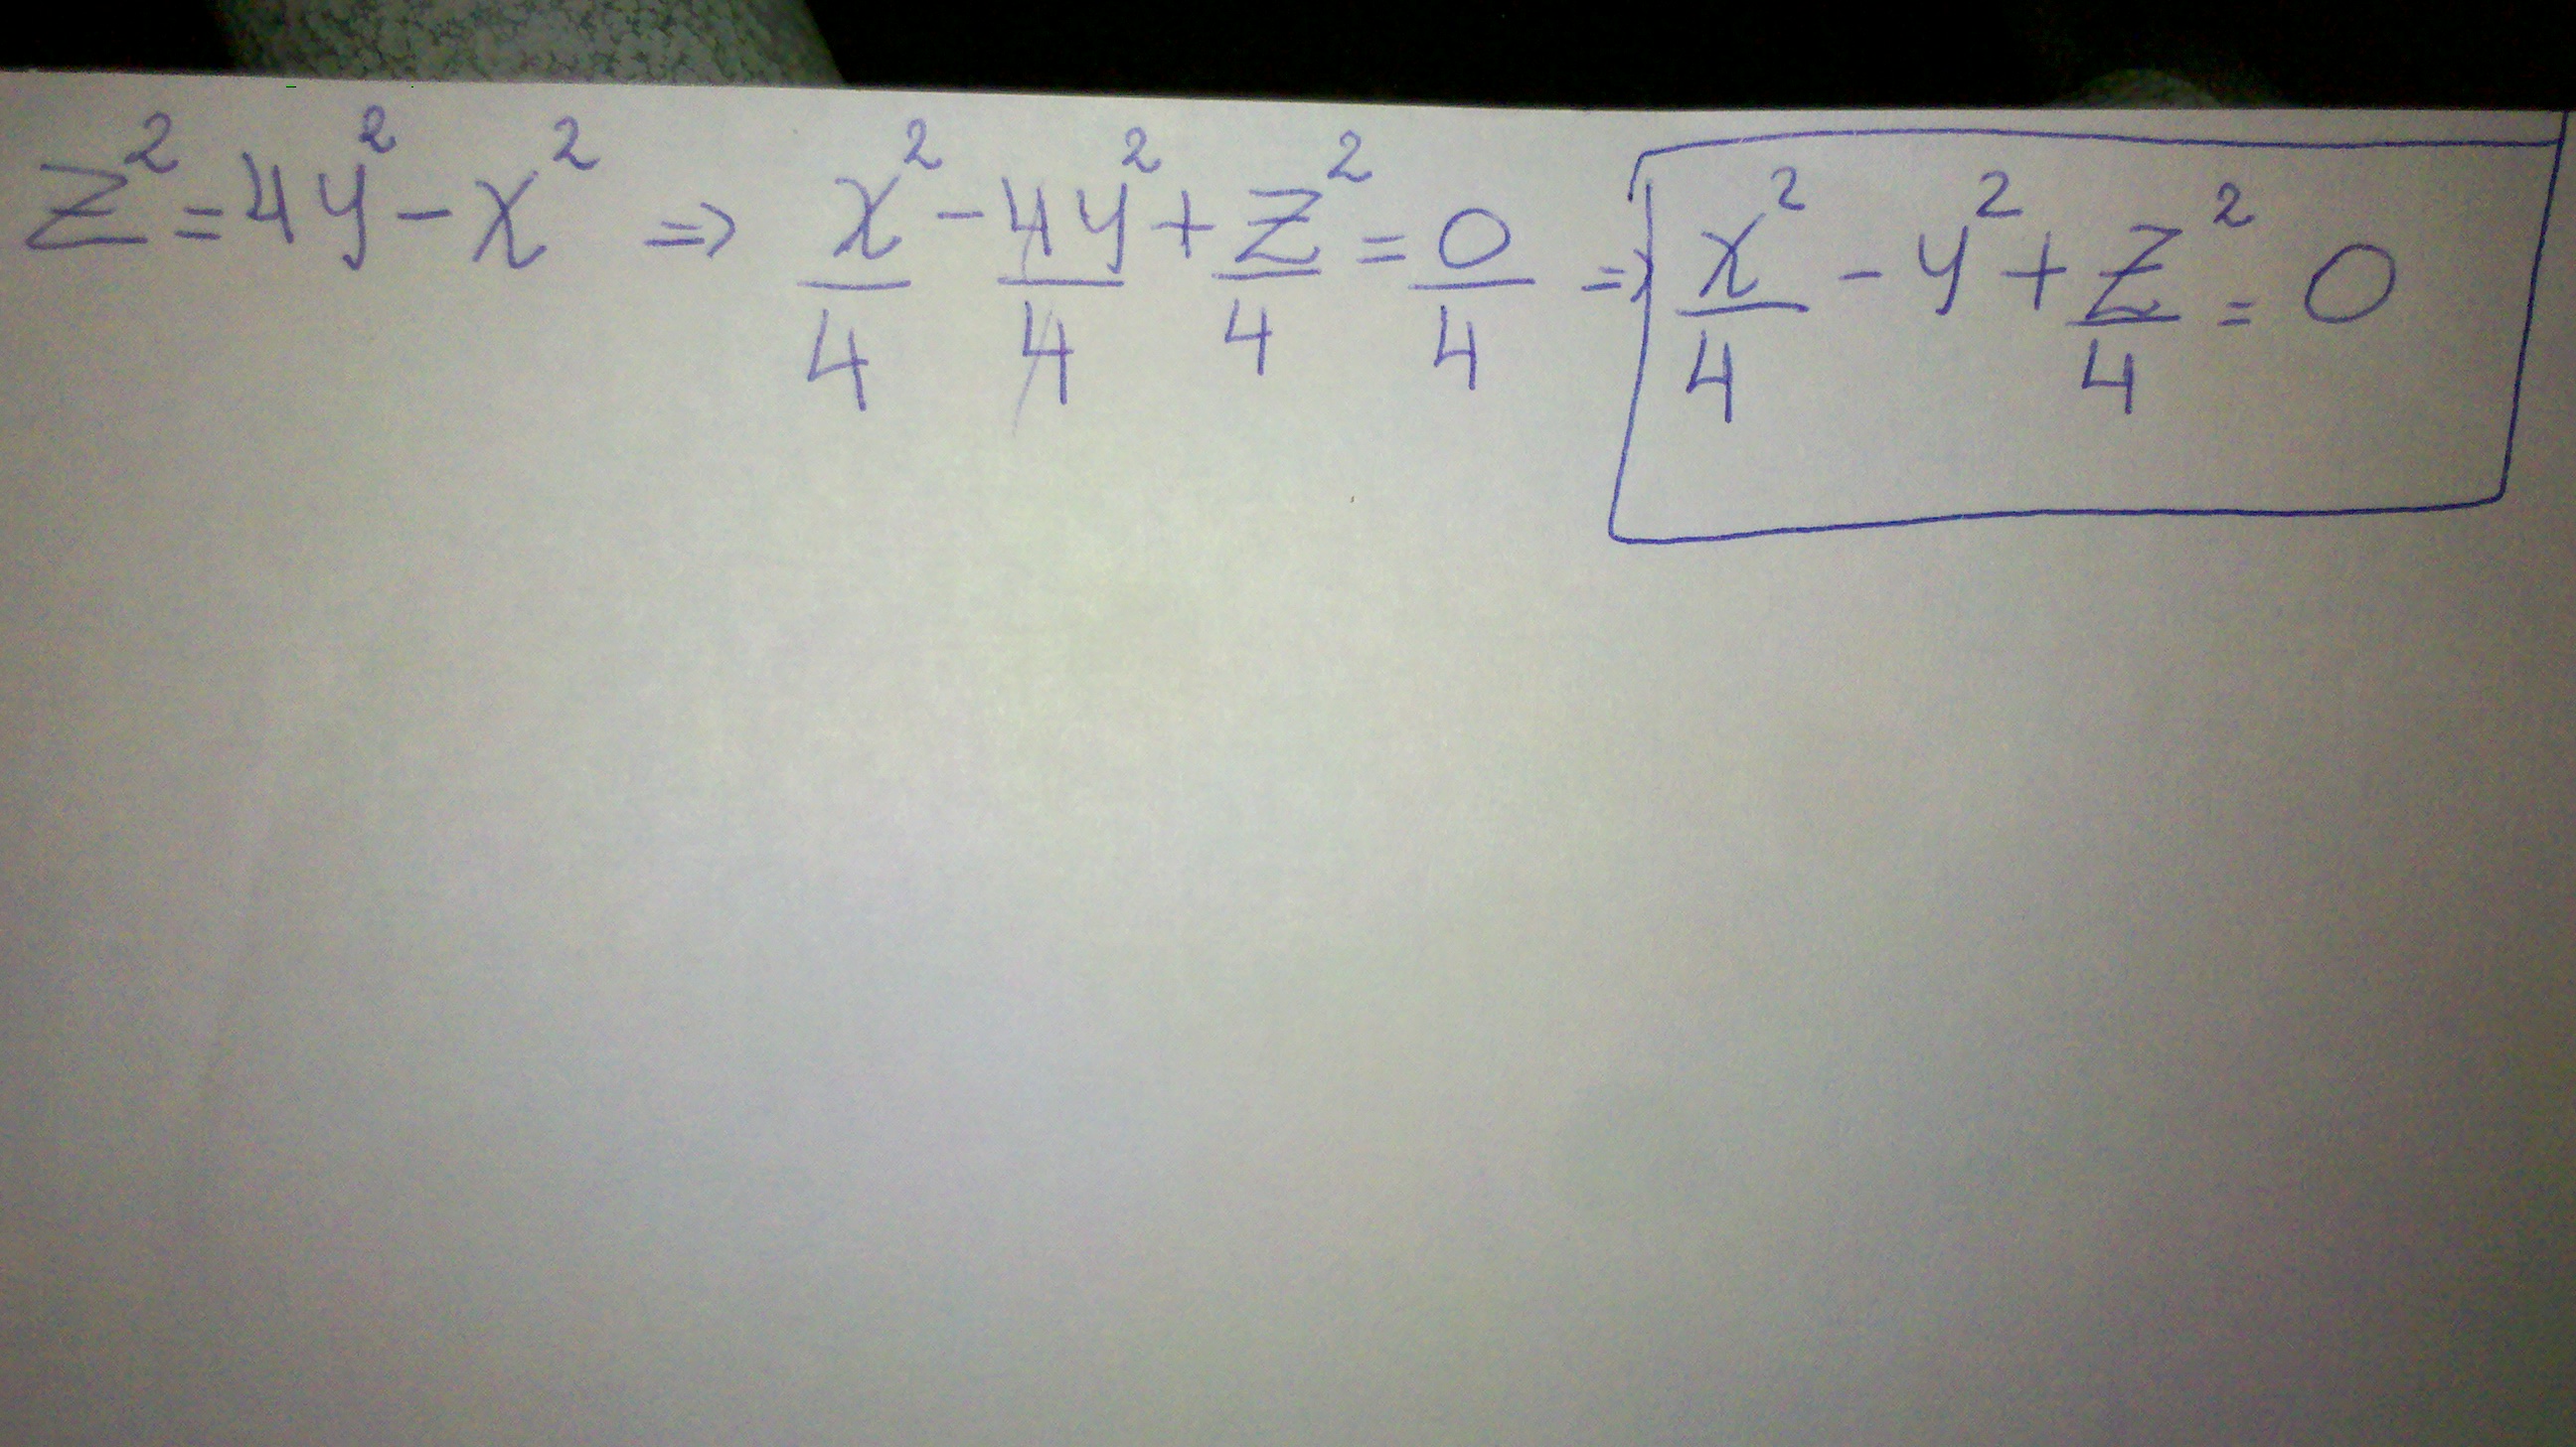 z² = 4y² - x² ⇒ x²/4 - 4y²/4 + z²/4 = 0/4 ⇒ x²/4 - y² + z²/4 = 0